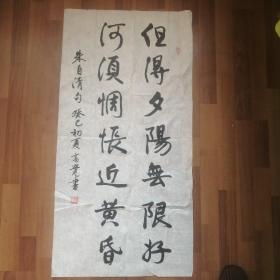 但得夕陽無限好
何須惆悵近黄昏
朱自清句 癸巳初夏 高覺書